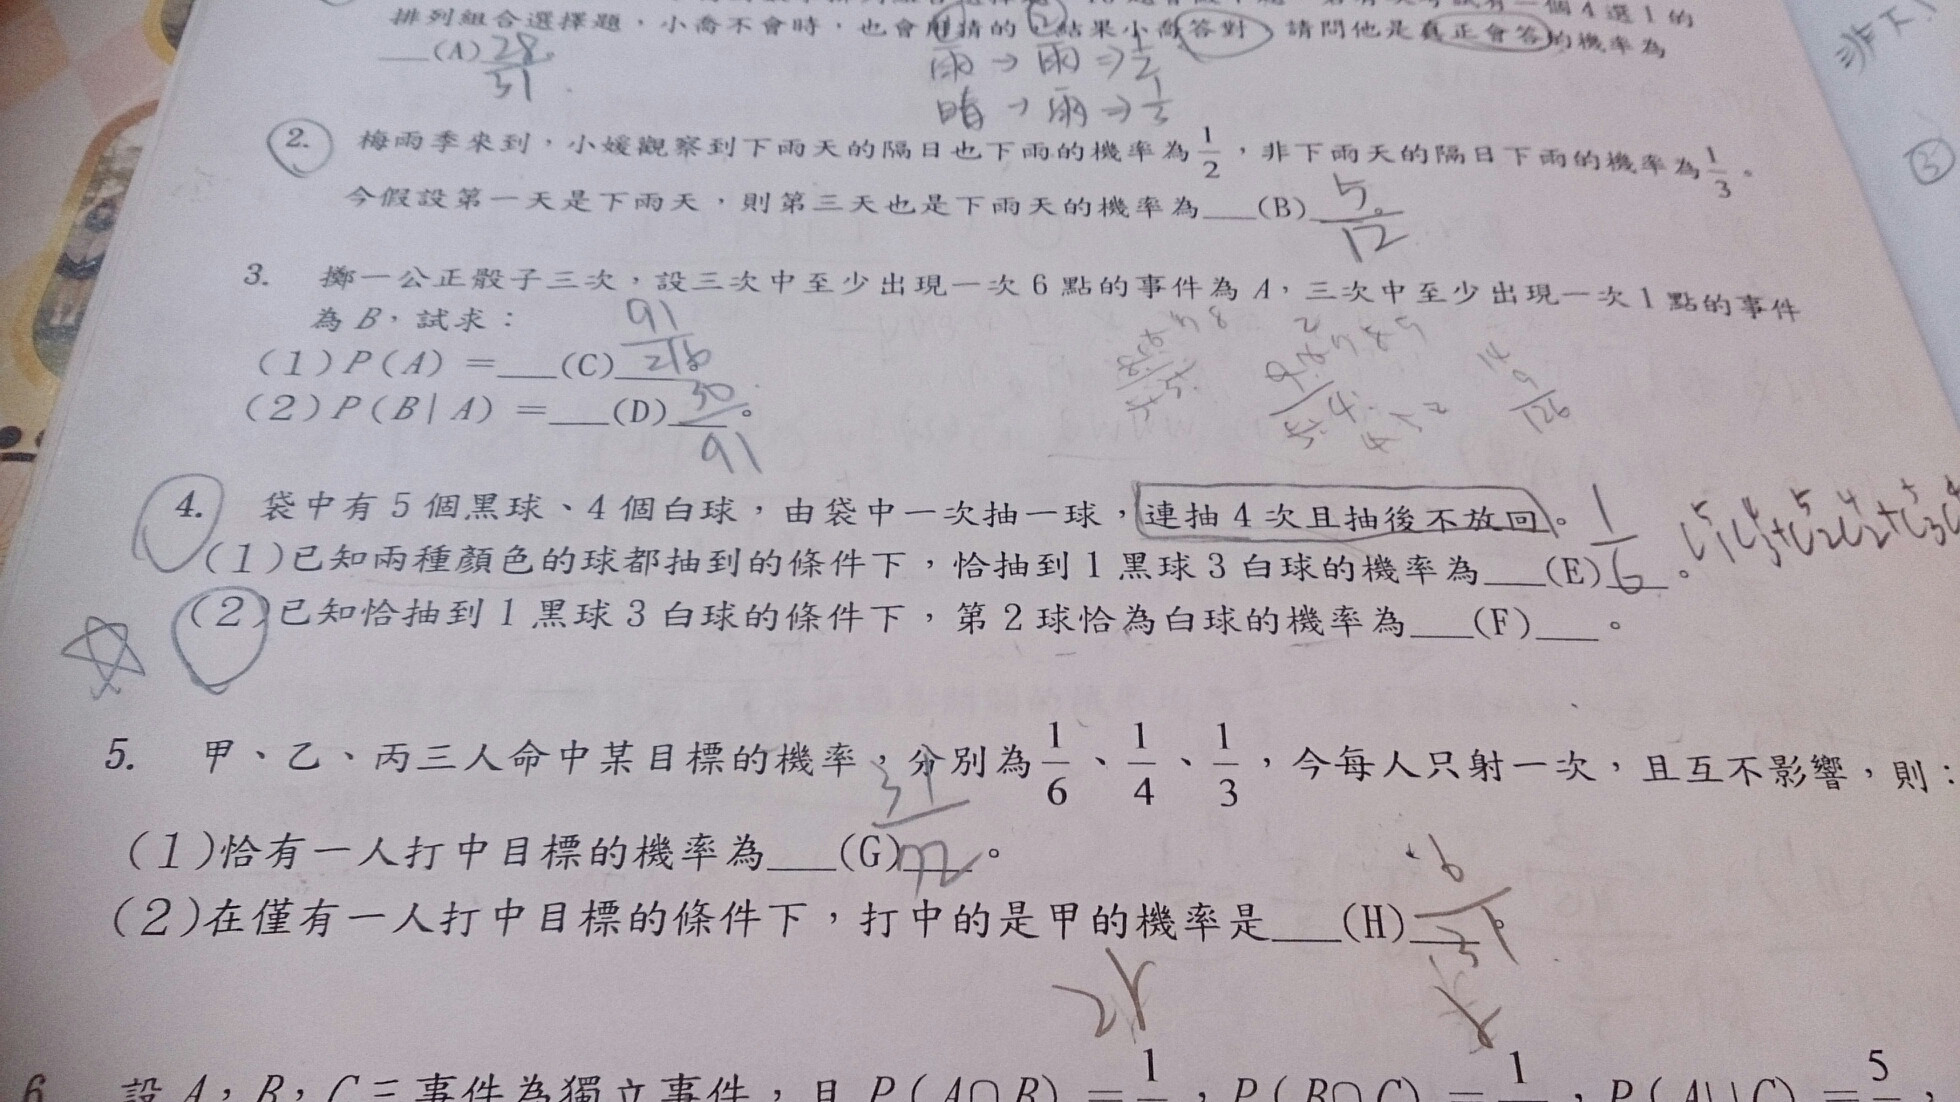 個4選1的
排列組合選擇題,小喬不會時,也會用猜的,結果小喬答對,請問他是真正會答的機率為
(A) 28/31
雨→雨⇒1/2
晴→雨⇒1/3
2. 梅雨季來到,小媛觀察到下雨天的隔日也下雨的機率為1/2,非下雨天的隔日下雨的機率為1/3。
今假設第一天是下雨天,則第三天也是下雨天的機率為___(B) 5/12。
3. 擲一公正骰子三次,設三次中至少出現一次6點的事件為A,三次中至少出現一次1點的事件
為B,試求:
(1)P(A)=___(C) 91/216
(2)P(B|A)=___(D) 30/91。
4. 袋中有5個黑球、4個白球,由袋中一次抽一球,連抽4次且抽後不放回。
(1)已知兩種顏色的球都抽到的條件下,恰抽到1黑球3白球的機率為___(E) 1/6。
(2)已知恰抽到1黑球3白球的條件下,第2球恰為白球的機率為___(F)___。
5. 甲、乙、丙三人命中某目標的機率,分別為1/6、1/4、1/3,今每人只射一次,且互不影響,則:
(1)恰有一人打中目標的機率為___(G) 31/72。
(2)在僅有一人打中目標的條件下,打中的是甲的機率是___(H) 6/31。
6. 設A,B,C三事件為獨立事件,且P(A∩B)=1,P(B∩C)=1,P(A∪C)=5,